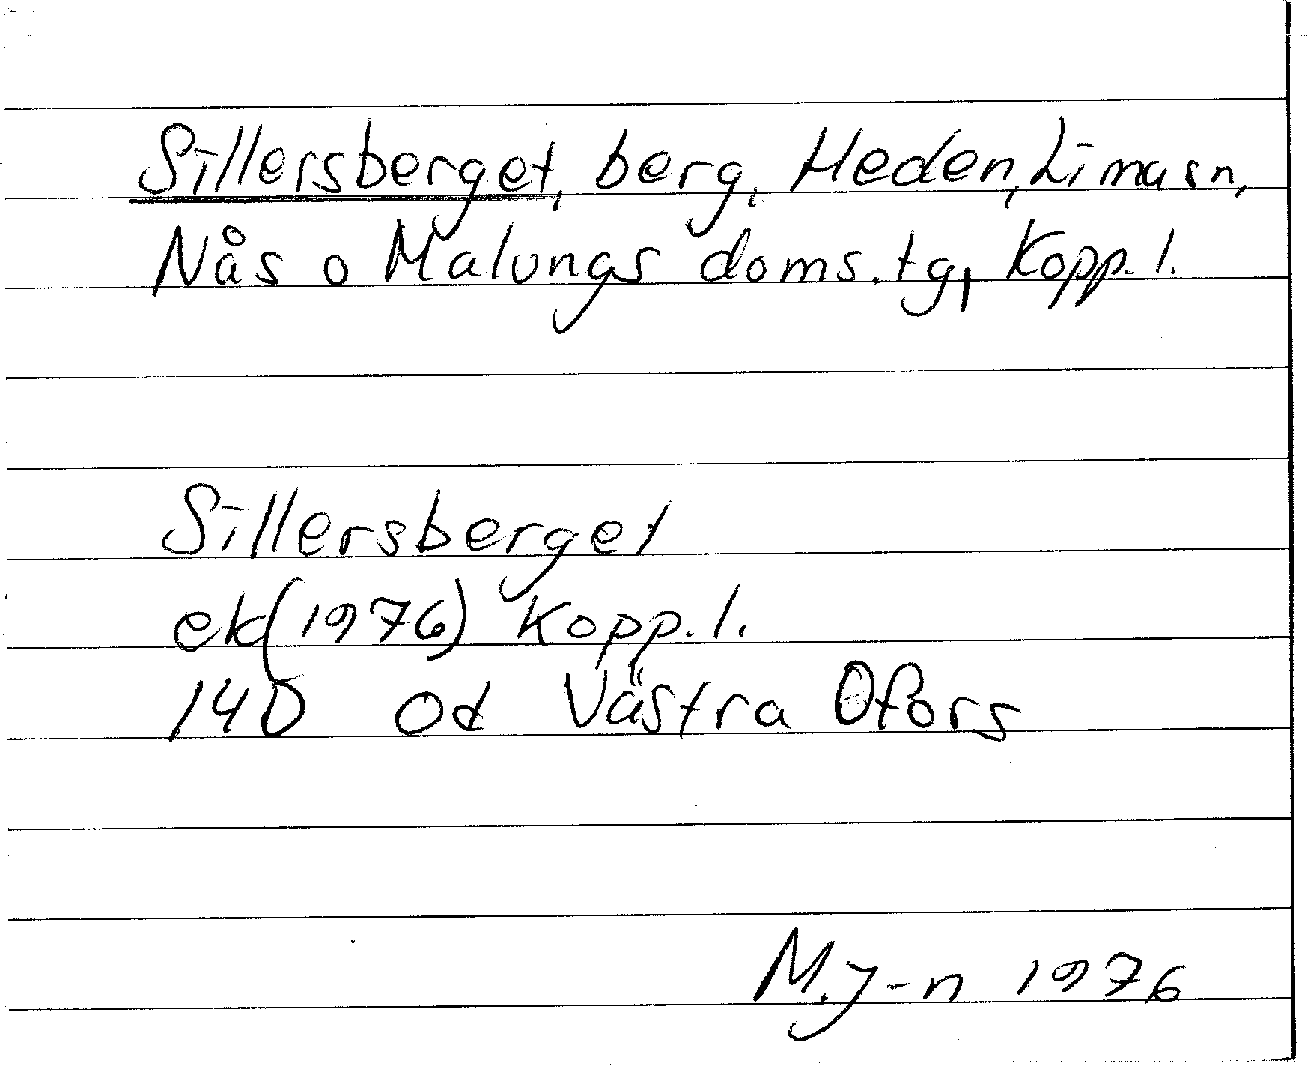 Sillersberget, berg, Heden, Lima sn,
Nås o Malungs doms.tg, Kopp. l.
Sillersberget
ek(1976) Kopp. l.
14D Od Västra Ofors
M.J-n 1976